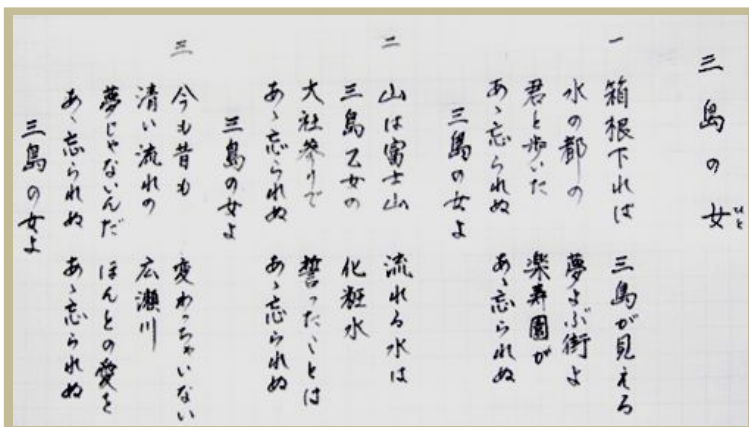 三島の女
ひと
一
箱根下れば 三島が見える
水の都の 夢よぶ街よ
君と歩いた 楽寿園が
あゝ忘られぬ あゝ忘られぬ
三島の女よ
二
山は富士山 流れる水は
三島乙女の 化粧水
大社参りで 誓ったことは
あゝ忘られぬ あゝ忘られぬ
三島の女よ
三
今も昔も 変わっちゃいない
清い流れの 広瀬川
夢じゃないんだ ほんとの愛を
あゝ忘られぬ あゝ忘られぬ
三島の女よ